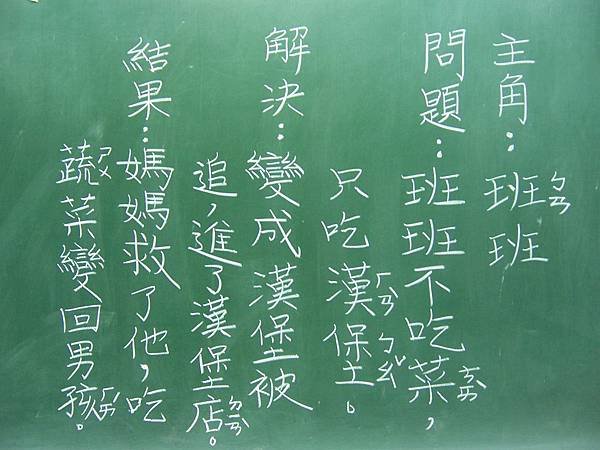 主角：班ㄅㄢ班
問題：班班不吃菜ㄘㄞˋ，
只吃漢ㄏㄢˋ堡ㄅㄠˇ。
解決：變成漢堡被
追，進了漢堡店ㄉㄧㄢˋ。
結果：媽媽救了他，吃
蔬ㄕㄨ菜變回男孩ㄏㄞˊ。